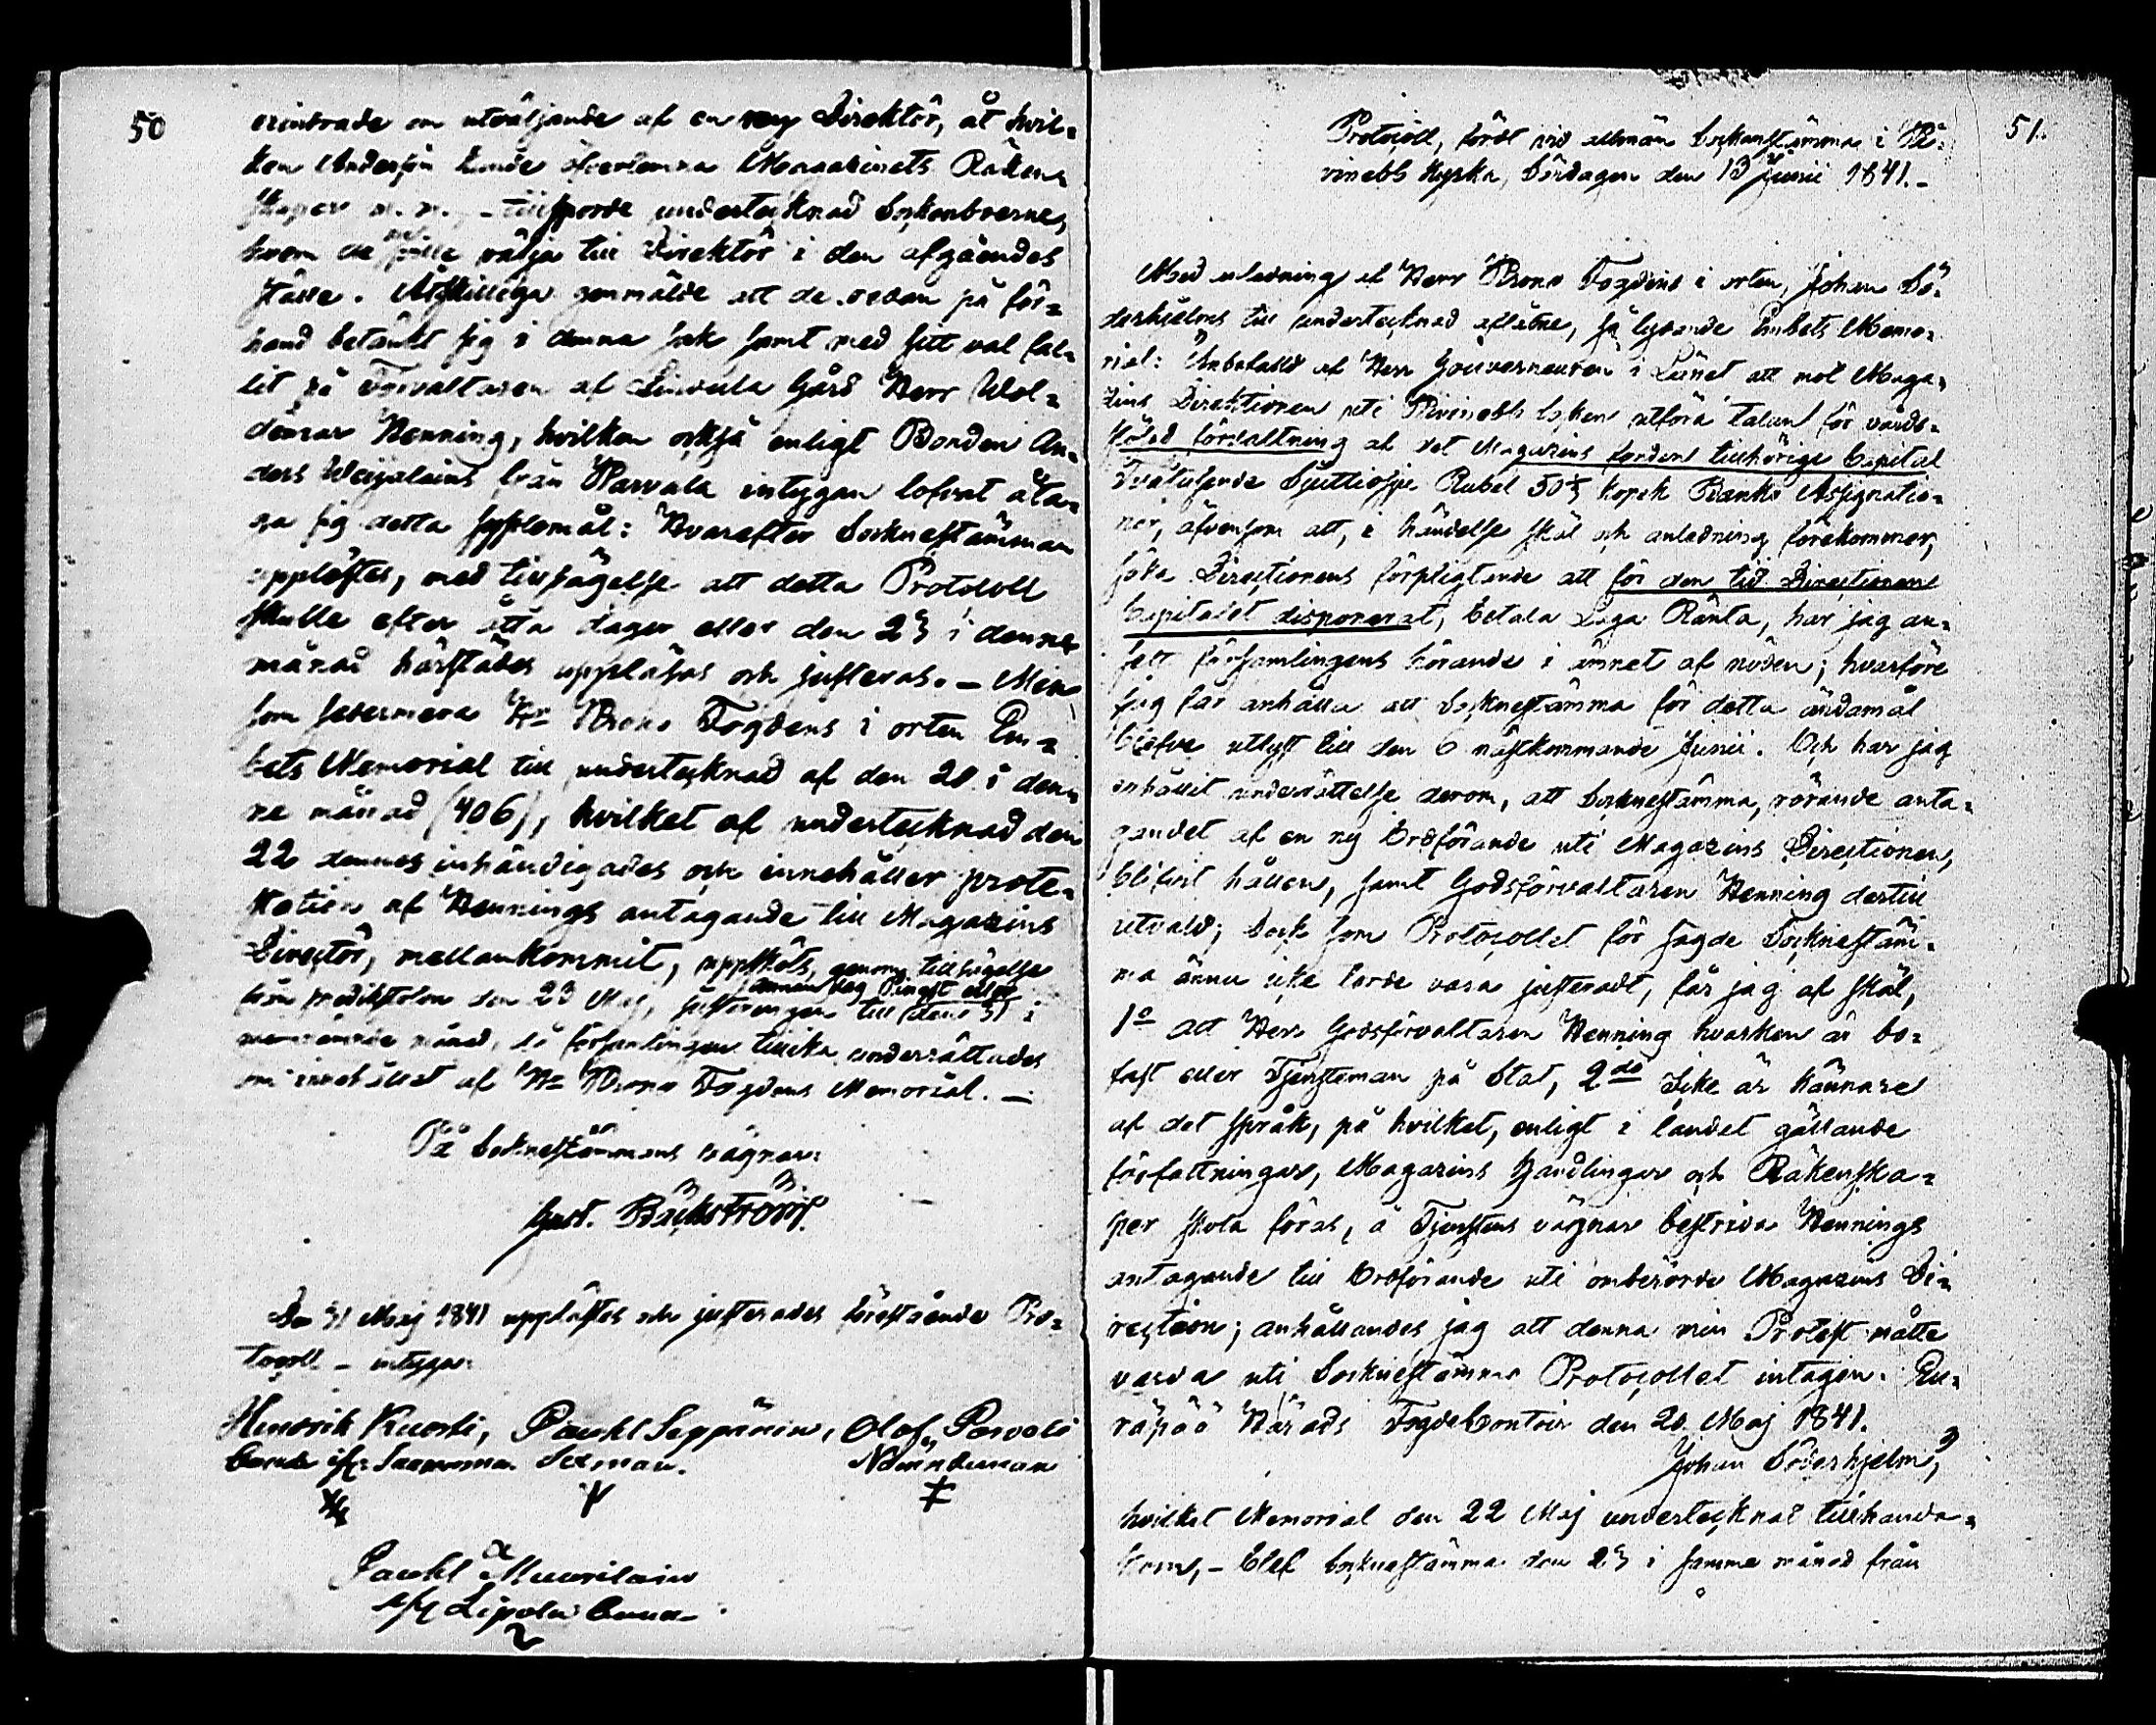 50
erindrade om utväljande af en ny Direktör, åt hvil=
ken Andersin kunde öfverlemna Magazinets Räken=
skaper m. m., - tillsporde undertecknad Sockenboerne,
hvem de ville välja till Direktör i den afgåendes
ställe. Åtskillige genmälde att de redan på för=
hand betänkt sig i denna sak samt med sitt val fal=
lit på Förvaltaren af Liuvula Gård Herr Wol=
demar Henning, hvilken också enligt Bonden An=
ders Weijalains från Parvala intygan lofvat åta=
ga sig detta sysslomål: Hvarefter Sockneftämman
upplöstes, med tillsägelse att detta Protocoll
skulle efter åtta dagar eller den 23 i denne
månad härstädes uppläsas och justeras. - Men
som sedermera Hr Krono Fogdens i orten Em=
bets Memorial till undertecknad af den 20 i den=
ne månad (406), hvilket af undertecknad den
22 dennes inhändigades och innehåller prote=
station af Hennings antagande till Magazins
Directör, mellankommit, uppsköts, genom tillsägelse
annan dag Pingst eller
från predikstolen den 23 Maj, justeringen till den 31 i
månad, då församlingen tillika underrättades
om innehållet af Hr Krono Fogdens Memorial. -
På Socknestämmans vägnar:
Gust. Bäckström.
Den 31 Maj 1841 upplästes och justerades förestående Pro=
tocoll - intyga:
Hendrik Kuosti, Paukl Seppänen, Olof Parvola
Bonde ifr. Sexman. Nämndeman
Paukl Muurilain
ifr Lipola bonde
51.
Protocoll, fördt vid allmän Sockenstämma i Ki=
vinebb Kyrka, Söndagen den 13 Junii 1841. -
Med anledning af Herr Krono Fogdens i orten, Johan Sö=
derhjelms till undertecknad aflåtne, så lydande Embets Memo=
rial: Anbefalld af Herr Gouverneuren i Länet att mot Maga=
zins Direktionen uti Kivinebb Socken utföra talan för vårds=
lösad förvaltning af det Magazins fonden tillhörige Capital
Tvåtusende Sjuttiosju Rubel 50 4/7 kopek Banko Assignatio=
ner, äfvensom att, i händelse skäl och anledning förekommer,
söka Directionens förpligtande att för den tid Directionen
Capitalet disponerat, betala Laga Ränta, har jag an=
sett församlingens hörande i ämnet af nöden; hvarföre
jag får anhålla att Sockneftämma för detta ändamål
blefve utlyst till den 6 nästkommande Junii. Och har jag
erhållit underrättelse derom, att Socknestämma, rörande anta=
gandet af en ny Ordförande uti Magazins Directionen,
blifvit hållen, samt Godsförvaltaren Henning dertill
utvald; Dock som Protocollet för sagde Socknestäm=
ma ännu icke torde vara justeradt, får jag af skäl,
1o Att Herr Godsförvaltaren Henning hvarken är bo=
fast eller Tjensteman på Stat, 2do Icke är kännare
af det språk, på hvilket, enligt i landet gällande
författningar, Magazins Handlingar och Räkenska=
per skola föras, å Tjenstens vägnar bestrida Hennings
antagande till Ordförande uti omberörde Magazins Di=
rection; anhållandes jag att denna min Protest måtte
varda uti Socknestämme Protocollet intagen. Eu=
räpää Härads Fogdecontoir den 20. Maj 1841.
Johan Söderhjelm,
hvilket Memorial den 22 Maj undertecknad tillhanda=
kom, - blef Socknestämma den 23 i samma månad från